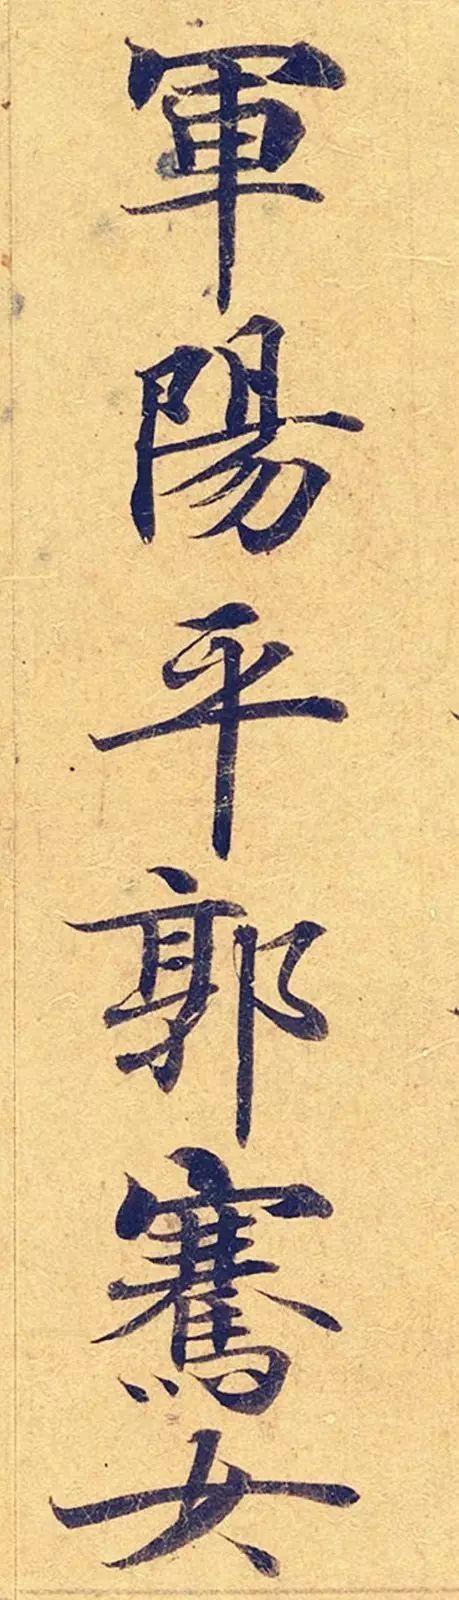 軍陽平郭騫女